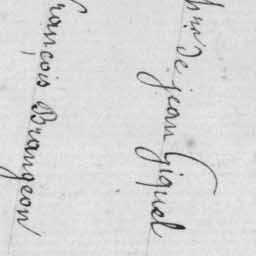 de jean Giquel
françois Brangeon